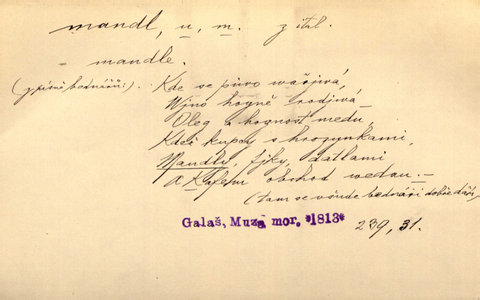 mandl, u, m. z ital.
= mandle.
(z písně bednářů:). Kde se pivo wařjwá,
Wjno hogně rodjwá
Oleg a hognost medu,
Kdež kupcy s hrozynkami,
Mandly, fjky, datlami
A Kafem obchod wedau. —
(tam se všude bednáři dobře daří)
Galaš, Muza mor. *1813* 239, 31.